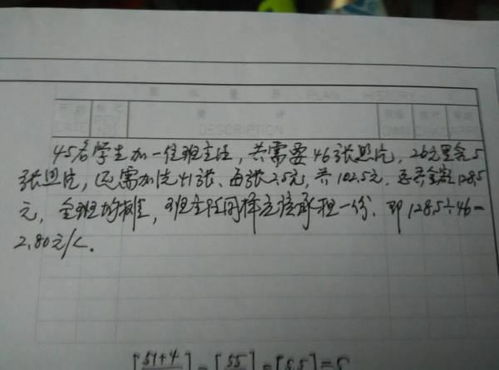 45名学生加一位班主任，共需要46张照片，26元里含5
张照片，还需加洗41张、每张2.5元，共102.5元。总共金额128.5
元，全班均摊，班主任同样应该承担一份，即128.5÷46=
2.80元/人.
[51+4/]=[55]=[5.5]=5